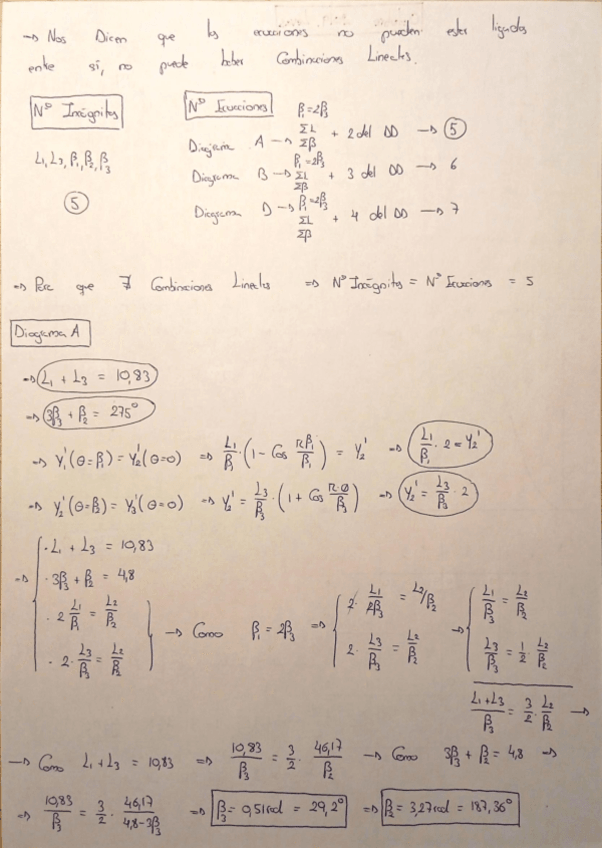 → Nos Dicen que las ecuaciones no pueden estar ligadas
entre sí, no puede haber Combinaciones Lineales.
Nº Incógnitas
L₁, L₃, β₁, β₂, β₃
⑤
Nº Ecuaciones
β₁=2β₃
Diagrama A → ΣL + 2 del DD → ⑤
Σβ
β₁=2β₃
Diagrama B → ΣL + 3 del DD → 6
Σβ
Diagrama D → β₁=2β₃
ΣL + 4 del DD → 7
Σβ
⇒ Para que ∄ Combinaciones Lineales ⇒ Nº Incógnitas = Nº Ecuaciones = 5
Diagrama A
⇒ L₁ + L₃ = 10,83
⇒ 3β₃ + β₂ = 275°
⇒ Y₁'(θ=β₁) = Y₂'(θ=0) ⇒ L₁/β₁ · (1 - Cos πβ₁/β₁) = Y₂' ⇒ L₁/β₁ · 2 = Y₂'
⇒ Y₂'(θ=β₂) = Y₃'(θ=0) ⇒ Y₂' = L₃/β₃ · (1 + Cos π·0/β₃) ⇒ Y₂' = L₃/β₃ · 2
⇒ { · L₁ + L₃ = 10,83
· 3β₃ + β₂ = 4,8
· 2 L₁/β₁ = L₂/β₂
· 2 · L₃/β₃ = L₂/β₂ } → Como β₁ = 2β₃ ⇒ { 2 · L₁/2β₃ = L₂/β₂
2 · L₃/β₃ = L₂/β₂ → { L₁/β₃ = L₂/β₂
L₃/β₃ = 1/2 L₂/β₂
L₁+L₃/β₃ = 3/2 · L₂/β₂ →
→ Como L₁ + L₃ = 10,83 ⇒ 10,83/β₃ = 3/2 · 46,17/β₂ → Como 3β₃ + β₂ = 4,8 ⇒
⇒ 10,83/β₃ = 3/2 · 46,17/4,8-3β₃ ⇒ β₃ = 0,51 rad = 29,2° ⇒ β₂ = 3,27 rad = 187,36°